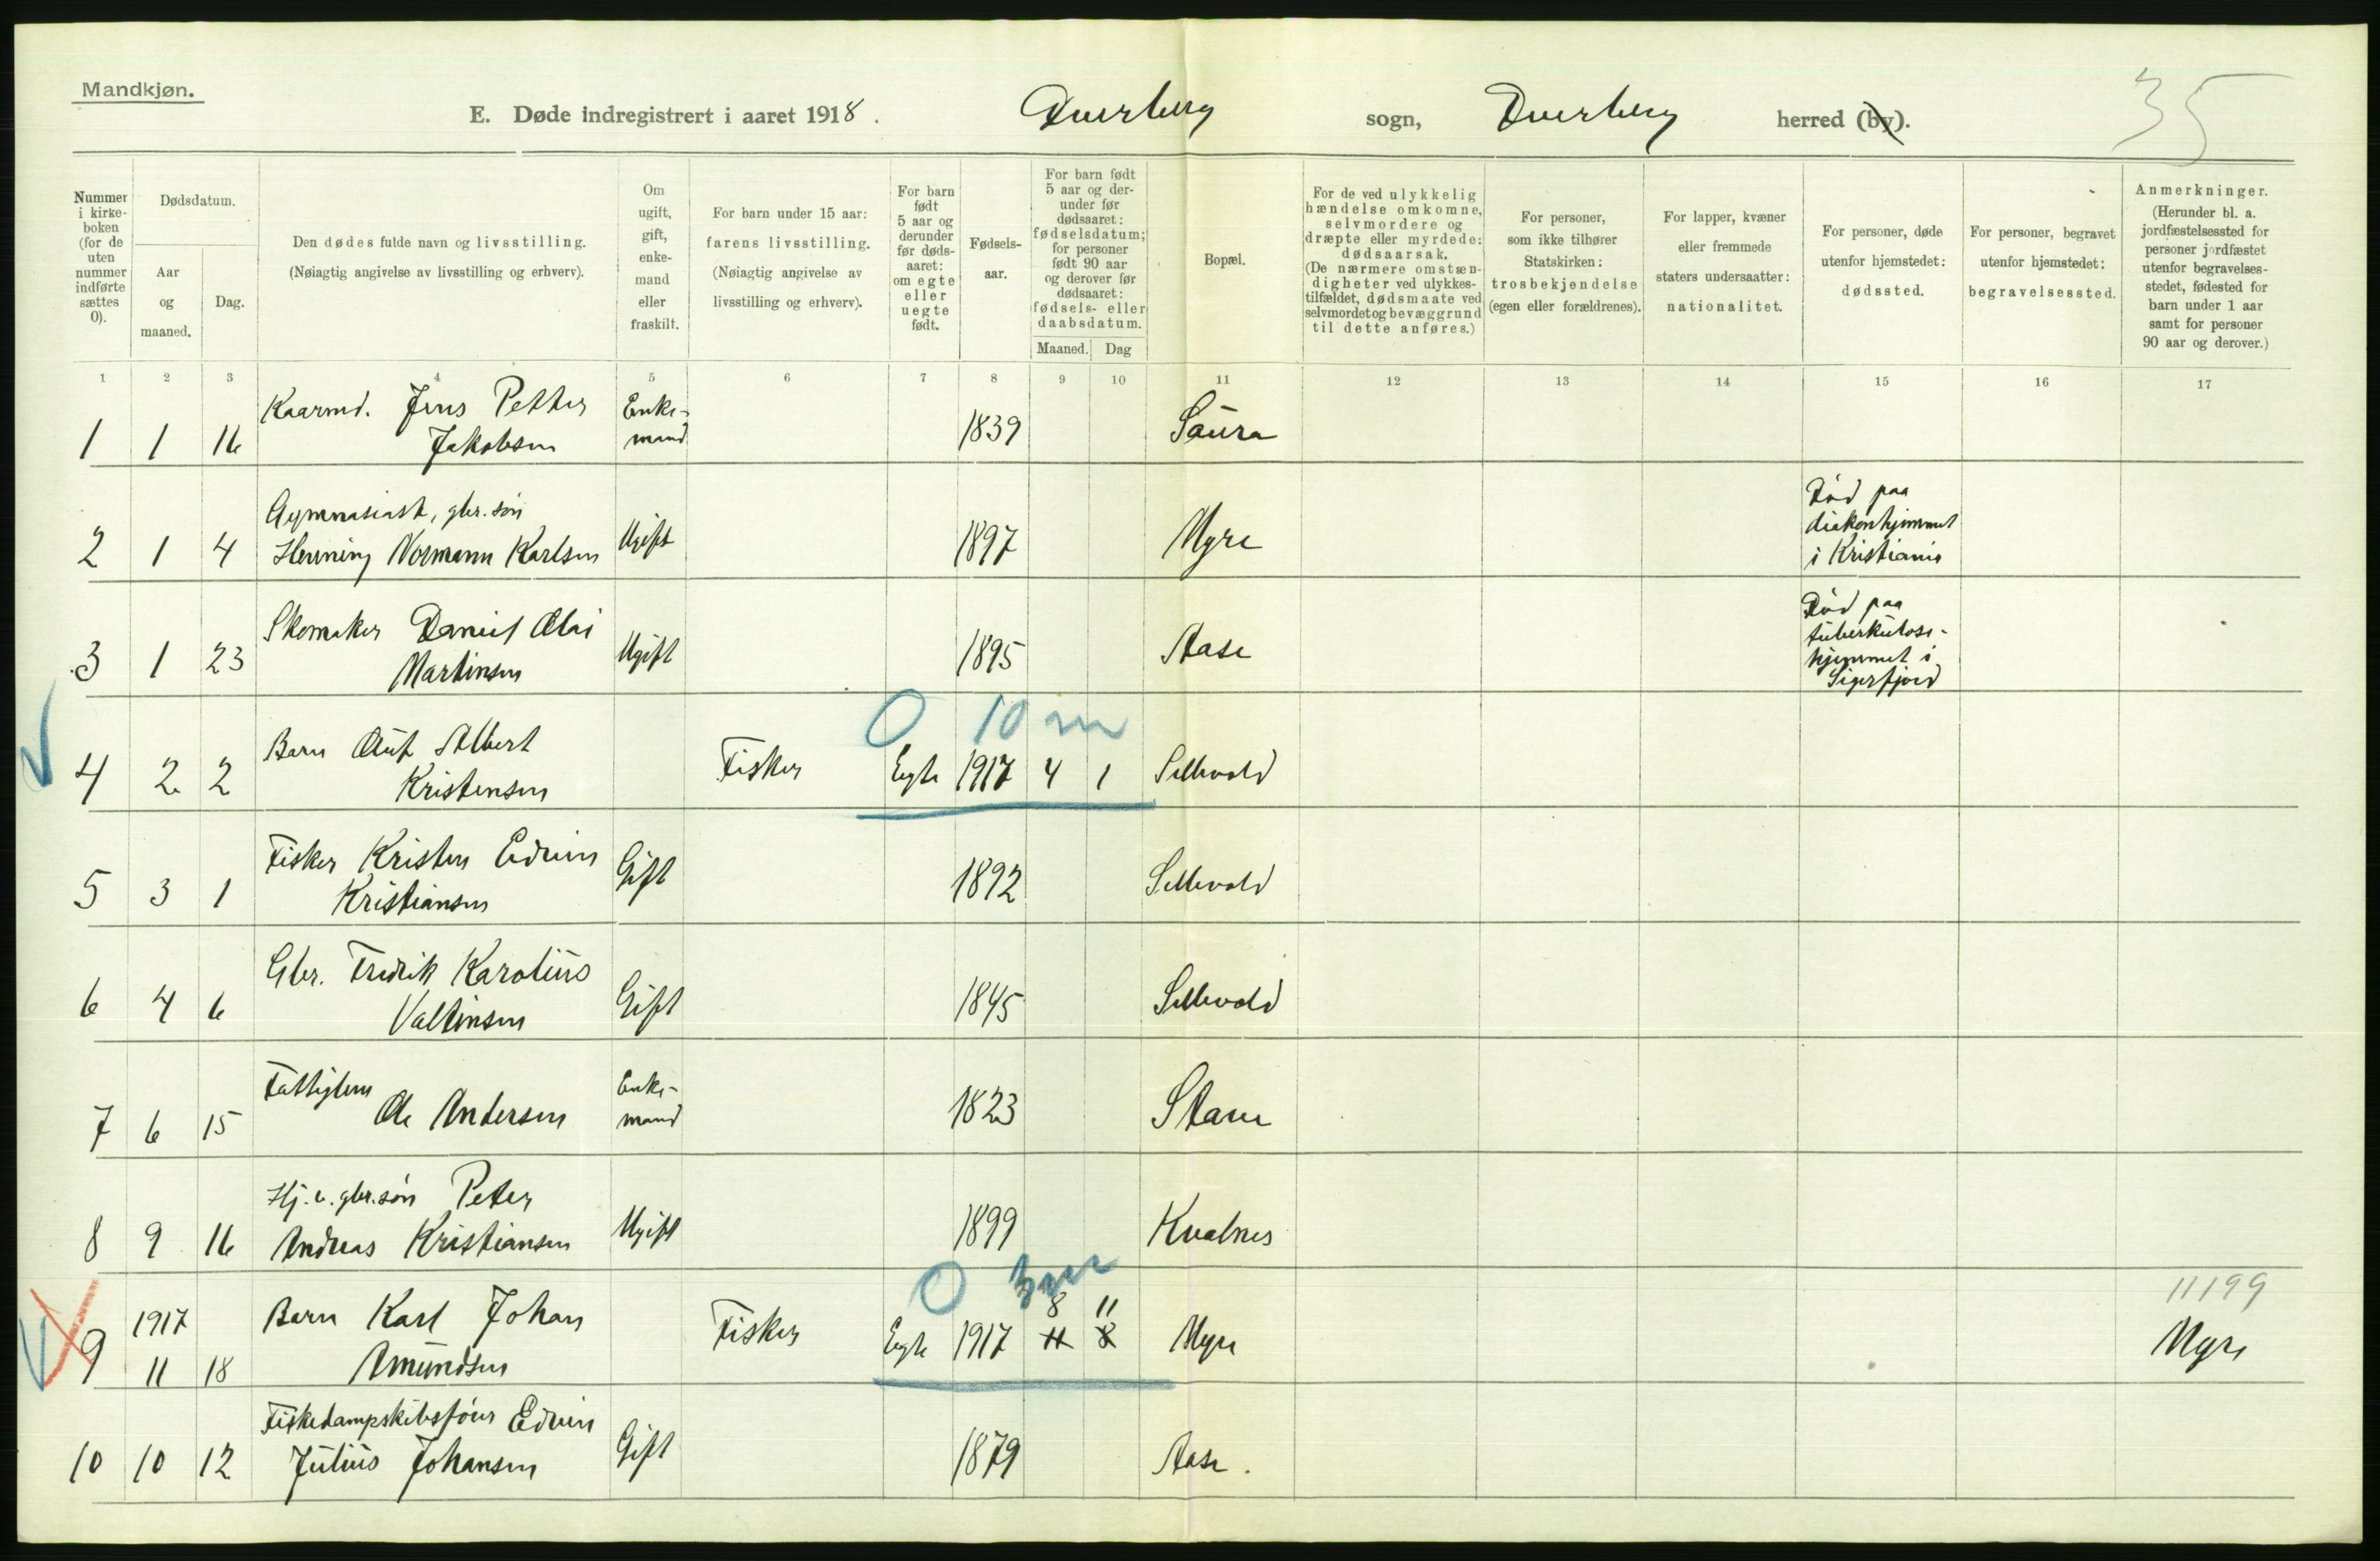 Mandkjøn.
E. Døde indregistrert i aaret 1918. Dverberg sogn, Dverberg herred (by).
35
Nummer i kirke-boken (for de uten nummer indførte sættes 0).
Dødsdatum.
Aar og maaned.
Dag.
Den dødes fulde navn og livsstilling.
(Nøiagtig angivelse av livsstilling og erhverv).
Om ugift, gift, enke-mand eller fraskilt.
For barn under 15 aar:
farens livsstilling.
(Nøiagtig angivelse av
livsstilling og erhverv).
For barn født 5 aar og derunder før døds-aaret: om egte eller uegte født.
Fødsels-aar.
For barn født 5 aar og der-under før dødsaaret: fødselsdatum; for personer født 90 aar og derover før dødsaaret: fødsels- eller daabsdatum.
Maaned. Dag
Bopæl.
For de ved ulykkelig hændelse omkomne, selvmordere og dræpte eller myrdede: dødsaarsak.
(De nærmere omstæn-digheter ved ulykkes-tilfældet, dødsmaate ved selvmord et og bevæggrund til dette anføres.)
For personer, som ikke tilhører Statskirken: trosbekjendelse (egen eller forældrenes).
For lapper, kvæner eller fremmede staters undersaatter: nationalitet.
For personer, døde utenfor hjemstedet: dødssted.
For personer, begravet utenfor hjemstedet: begravelsessted.
Anmerkninger.
(Herunder bl. a. jordfæstelsessted for personer jordfæstet utenfor begravelses-stedet, fødested for barn under 1 aar samt for personer 90 aar og derover.)
1 2 3 4 5 6 7 8 9 10 11 12 13 14 15 16 17
1 1 16 Kaarmd. Jens Petter Jakobsen Enke-mand 1839 Saura
2 1 4 Gymnasiast, gbr. søn Henning Normann Karlsen Ugift 1897 Myre Død paa diakonhjemmet i Kristiania
3 1 23 Skomaker Daniel Olai Martinsen Ugift 1895 Aase Død paa tuberkulose-hjemmet i Sigerfjord
0 10 m
4 2 2 Barn Oluf Albert Kristensen Fisker Egte 1917 4 1 Sellevold
5 3 1 Fisker Kristen Edvin Kristiansen Gift 1892 Sellevold
6 4 6 Gbr. Fredrik Karolius Valtinsen Gift 1845 Sellevold
7 6 15 Fattiglem Ole Andersen Enke-mand 1823 Stave
8 9 16 Hj. v. gbr. søn Peter Andreas Kristiansen Ugift 1899 Kvalnes
0 3 m
11199
9 1917 11 18 Barn Karl Johan Amundsen Fisker Egte 1917 8 11 11 8 Myre Myre
10 10 12 Fiskedampskibsfører Edvin Julius Johansen Gift 1879 Aase.